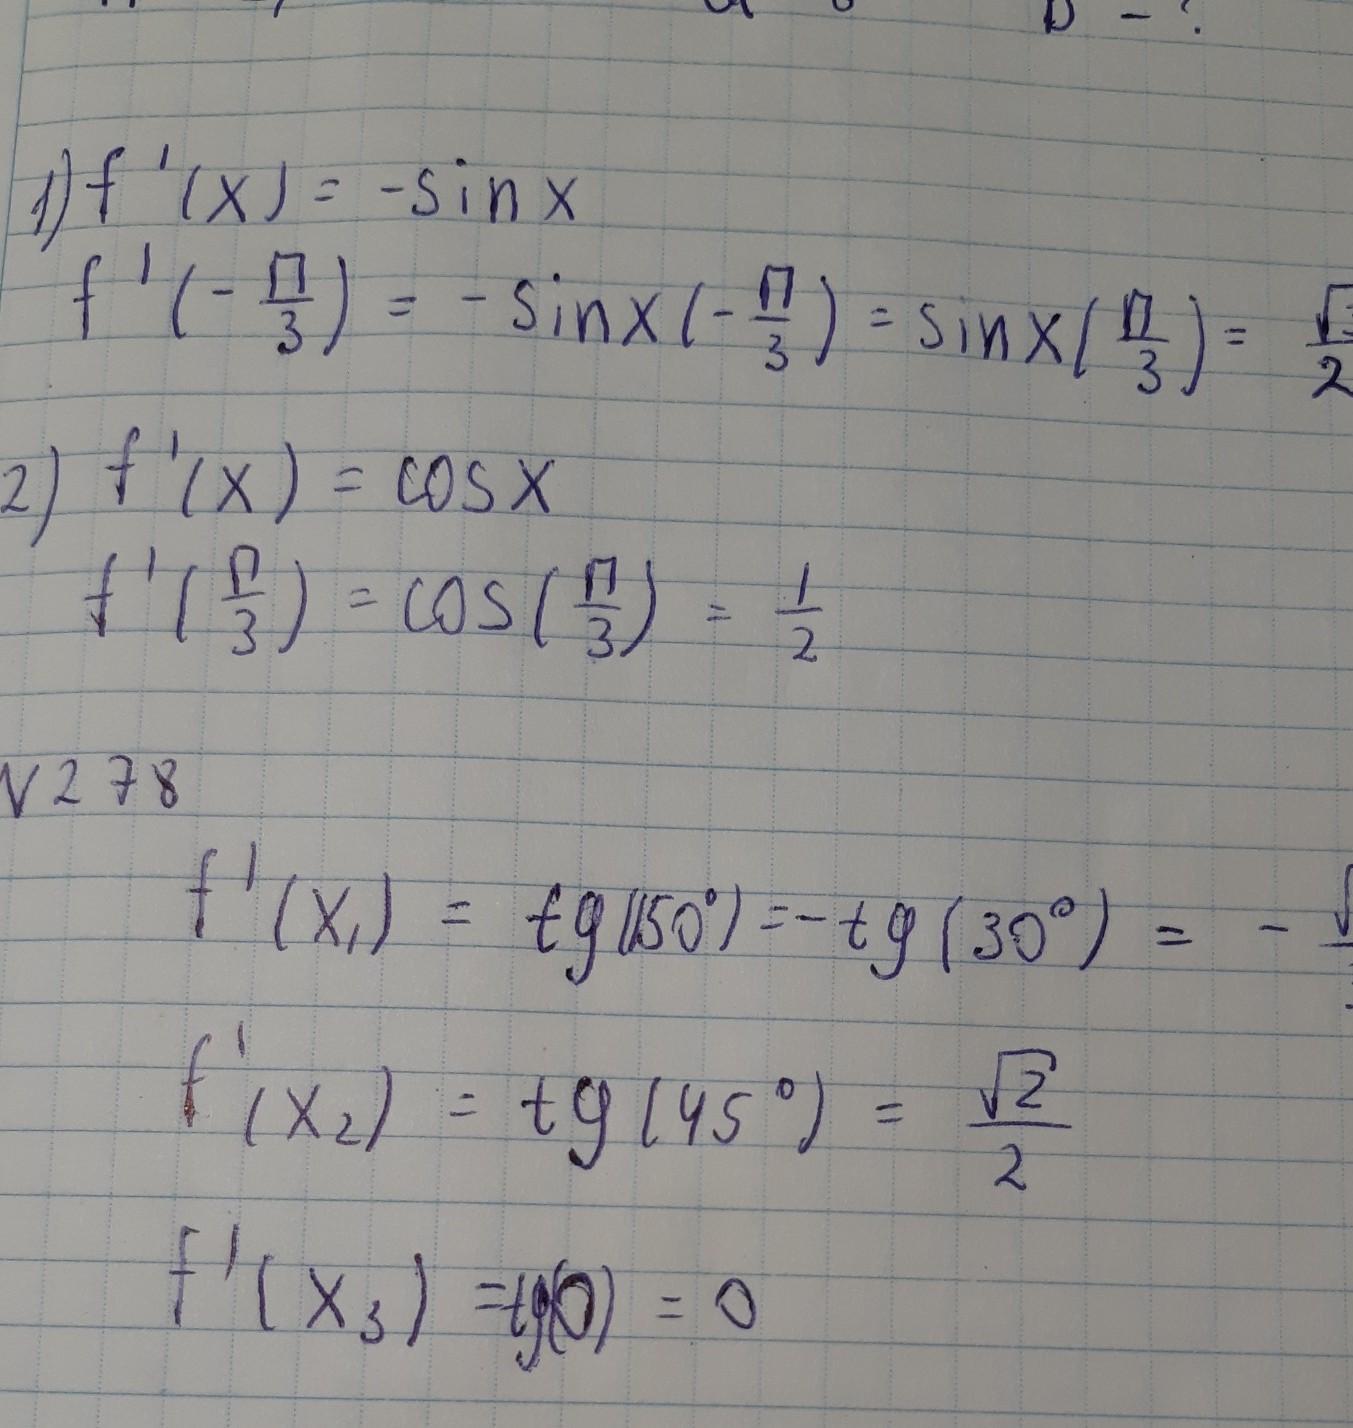 1) f'(x) = -sin x
f'(-π/3) = -sin x(-π/3) = sin x(π/3) = √3/2
2) f'(x) = cos x
f'(π/3) = cos(π/3) = 1/2
N278
f'(x₁) = tg(150°) = -tg(30°) = -√
f'(x₂) = tg(45°) = √2/2
f'(x₃) = tg(0) = 0